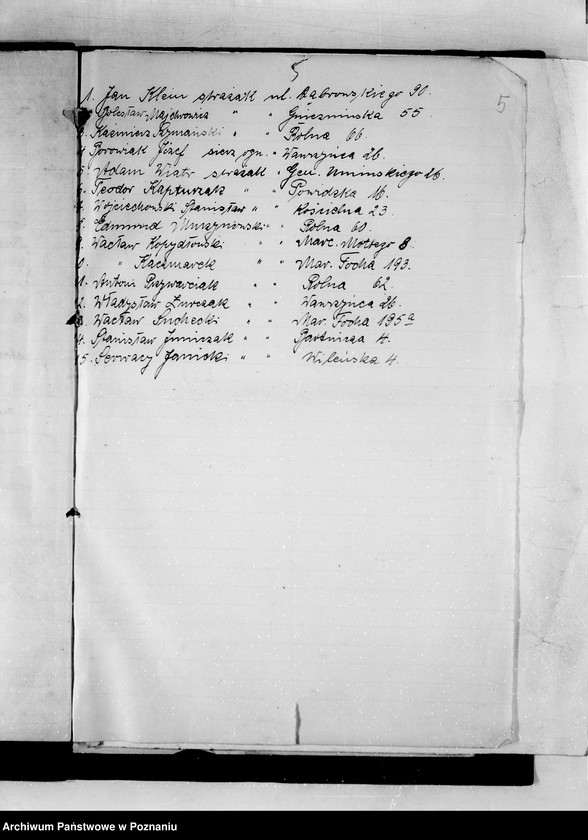 5
5
1. Jan Klein strażak ul. Dąbrowskiego 90.
Bolesław Majchrowicz " " Gnieźnińska 55.
3. Kazimierz Szymański " " Rolna 66.
4. Borowiak Józef sierż. ogn. " Wawrzyńca 26.
5. Adam Wiatr strażak " Gen. Umińskiego 26.
Teodor Kapturzak " " Powidzka 16.
Wojciechowski Stanisław " " Kościelna 23.
Edmund " Rolna 60.
9. Wacław Kopydłowski " " Marc. Mottego 8.
0. " Kaczmarek " " Mar. Focha 193.
1. Antoni " " Rolna 62.
2. Władysław Żurczak " " Wawrzyńca 26.
3. Wacław Suchecki " " Mar. Focha 195a
4. Stanisław " " 4.
5. Serwacy Janicki " " Wileńska 4.
Archiwum Państwowe w Poznaniu